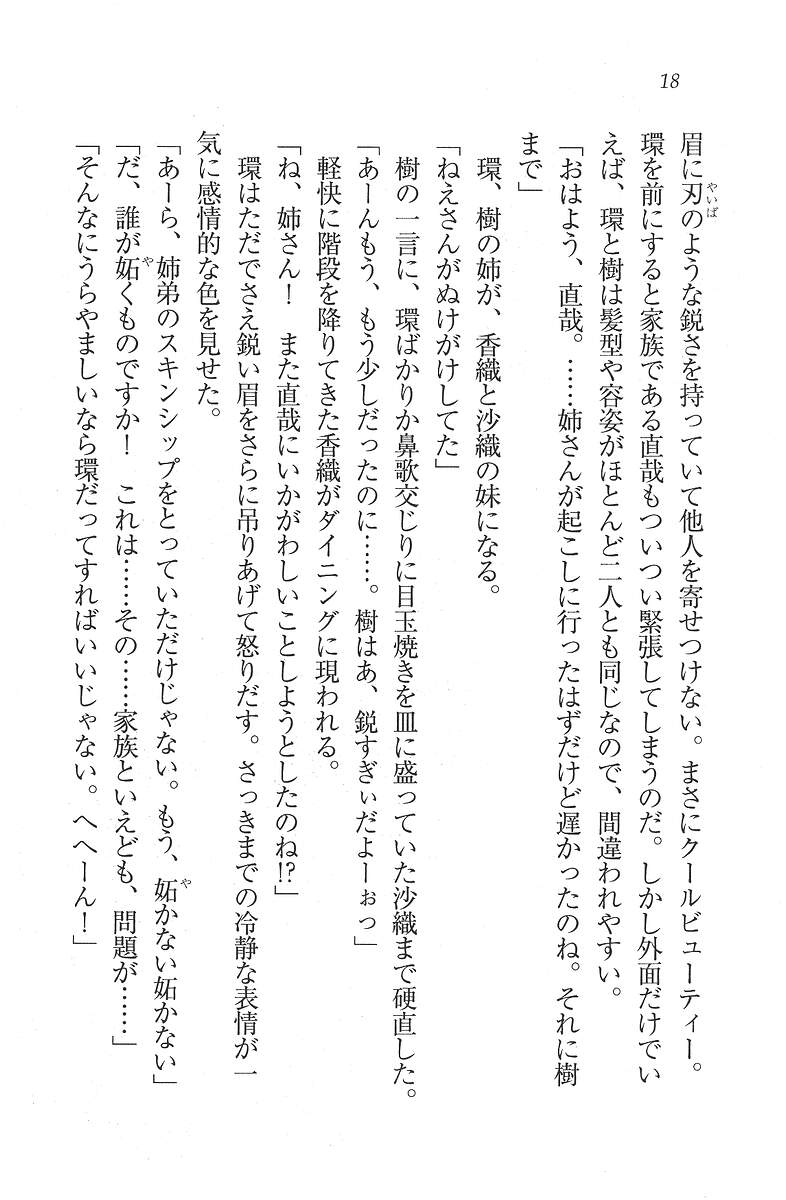 18
眉に刃のような鋭さを持っていて他人を寄せつけない。まさにクールビューティー。
やいば
環を前にすると家族である直哉もついつい緊張してしまうのだ。しかし外面だけでい
えば、環と樹は髪型や容姿がほとんど二人とも同じなので、間違われやすい。
「おはよう、直哉。……姉さんが起こしに行ったはずだけど遅かったのね。それに樹
まで」
環、樹の姉が、香織と沙織の妹になる。
「ねえさんがぬけがけしてた」
樹の一言に、環ばかりか鼻歌交じりに目玉焼きを皿に盛っていた沙織まで硬直した。
「あーんもう、もう少しだったのに……。樹はあ、鋭すぎぃだよーぉっ」
軽快に階段を降りてきた香織がダイニングに現われる。
「ね、姉さん！　また直哉にいかがわしいことしようとしたのね!?」
環はただでさえ鋭い眉をさらに吊りあげて怒りだす。さっきまでの冷静な表情が一
気に感情的な色を見せた。
「あーら、姉弟のスキンシップをとっていただけじゃない。もう、妬かない妬かない」
や
「だ、誰が妬くものですか！　これは……その……家族といえども、問題が……」
や
「そんなにうらやましいなら環だってすればいいじゃない。へへーん！」